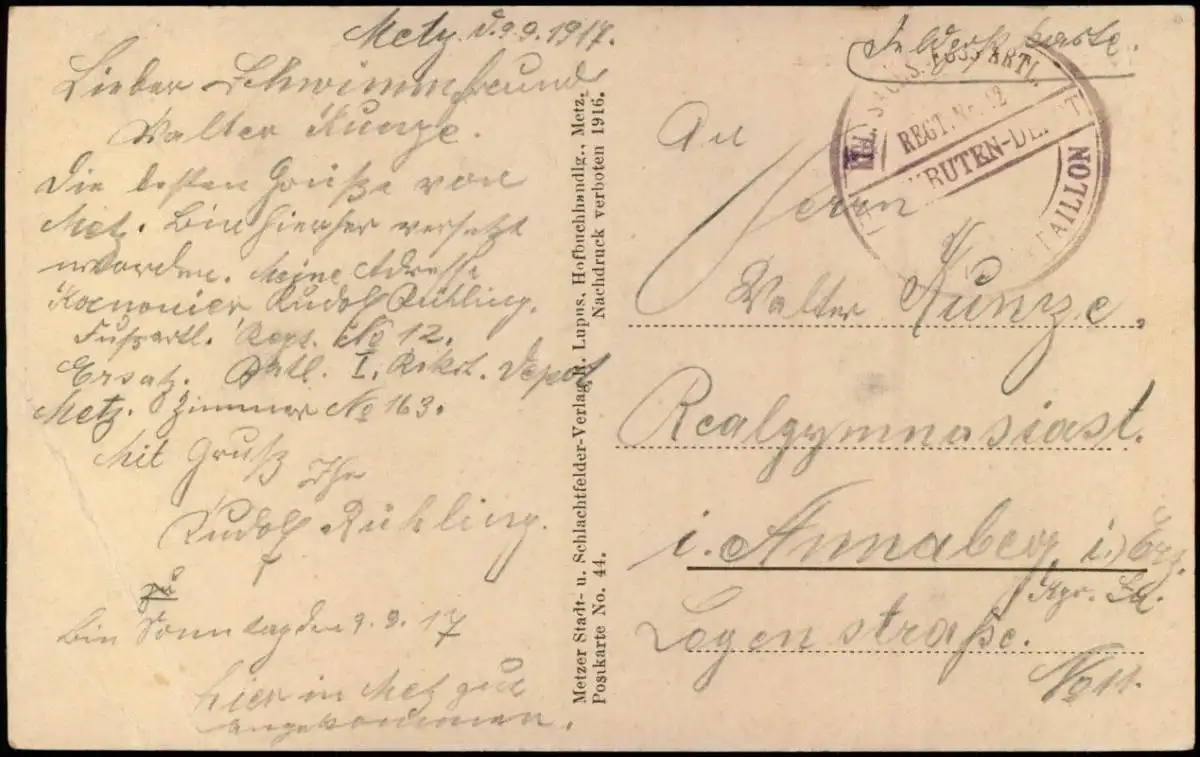 Metz. d. 9.9.1917.
Lieber Schwimmfreund
Walter Kunze.
Die besten Grüße von
Metz. Bin hierher versetzt
worden. Meine Adresse
Kanonier Rudolf Rühling.
Fußartl. Regt. No 12.
Ersatz. Batl. I. Rekrt. Depot
Metz. Zimmer No 163.
Mit Gruß
Ihr
Rudolf Rühling.
Bin Sonntag den 9.9.17
hier in Metz gut
angekommen.
Metzer Stadt- u. Schlachtfelder-Verlag R. Lupus, Hofbuchhandlg., Metz.
Postkarte No. 44. Nachdruck verboten 1916.
Feldpostkarte.
FUSSARTL.
REGT. No. 12
An
Herrn
Walter Kunze.
Realgymnasiast.
i. Annaberg i. Erz.
Kgr. Sa.
Logenstraße.
No 11.